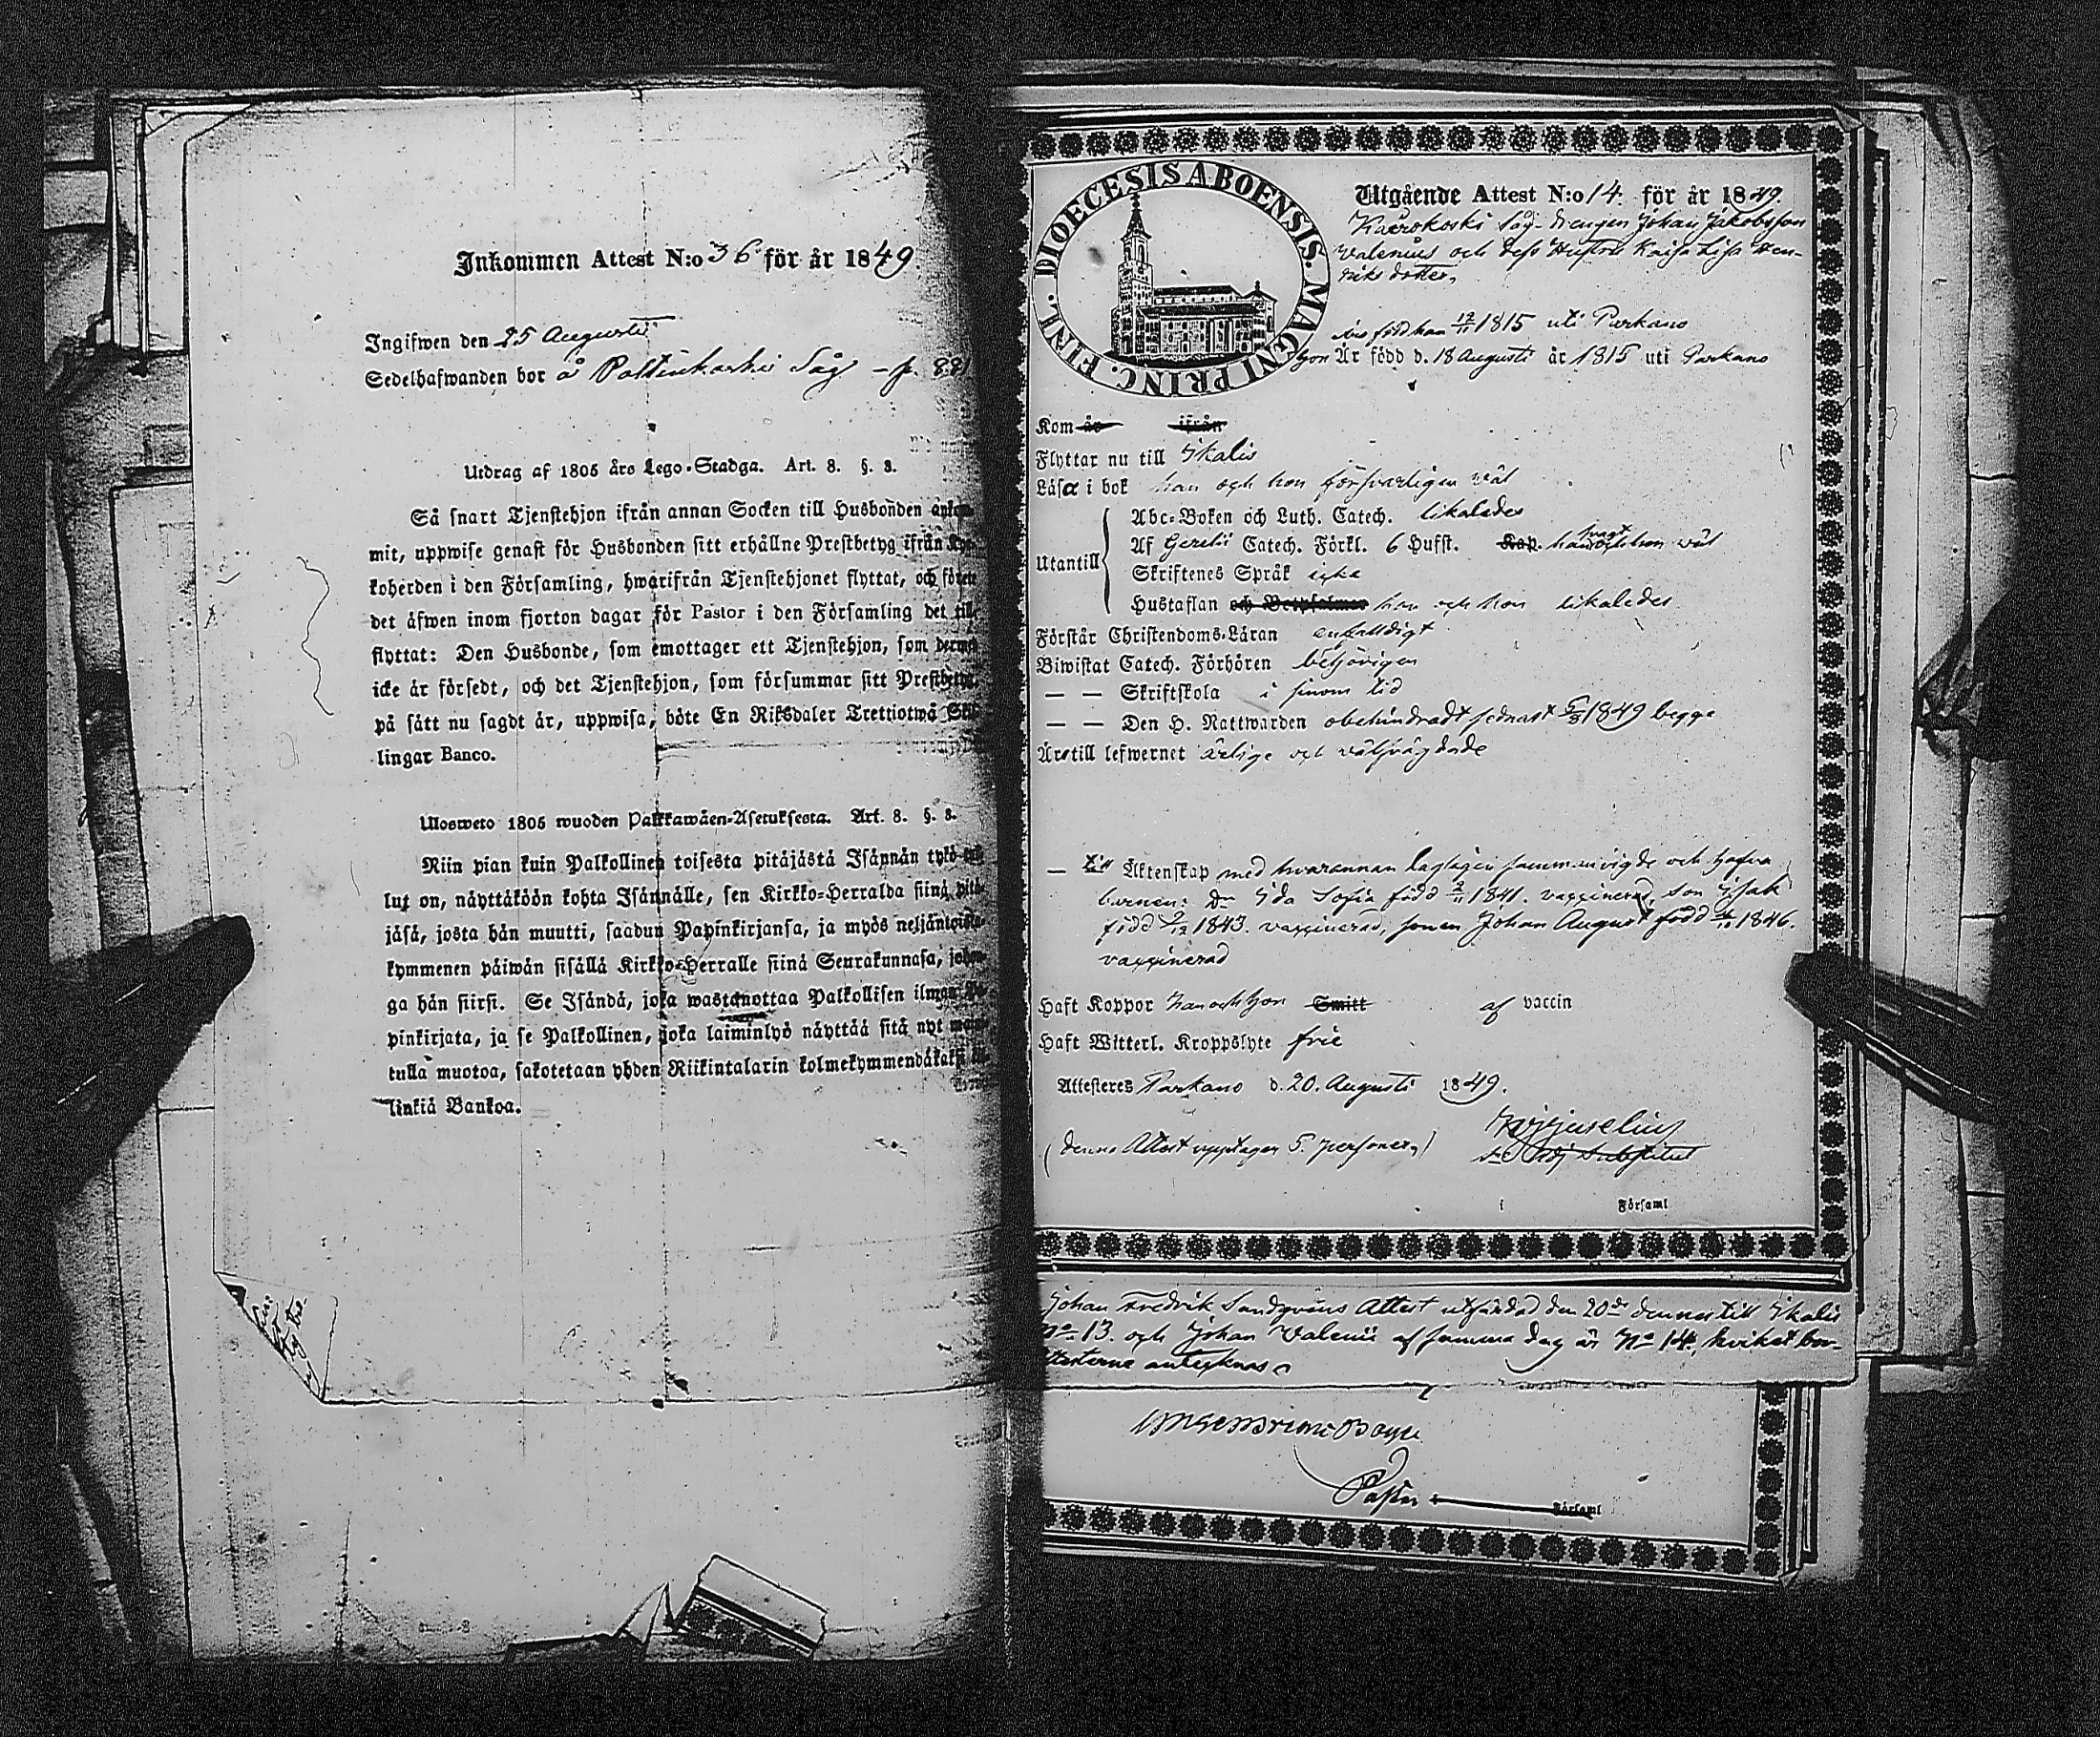 Inkommen Attest N:o 36 för år 1849.
Ingifwen den 25 Augusti
Sedelhafwanden bor å Poltinkoski Såg - p. 881
Utdrag af 1805 års Lego-Stadga. Art. 8. §. 8.
Så snart Tjenstehjon ifrån annan Socken till Husbonden ankom-
mit, uppwise genast för Husbonden sitt erhållne Prestbetyg ifrån Kyr-
koherden i den Församling, hwarifrån Tjenstehjonet flyttat, och förete
det äfwen inom fjorton dagar för Pastor i den Församling det till-
flyttat: Den Husbonde, som emottager ett Tjenstehjon, som dermed
icke är försedt, och det Tjenstehjon, som försummar sitt Prestbetyg,
på sätt nu sagdt är, uppwisa, böte En Riksdaler Trettiotwå Skil-
lingar Banco.
Ulosweto 1805 wuoden Palkkawäen-Asetuksesta. Art. 8. §. 8.
Niin pian kuin Palkollinen toisesta pitäjästä Isännän tykö tul-
lut on, näyttäköön kohta Isännälle, sen Kirkko-Herralda siinä pitä-
jäsä, josta hän muutti, saadun Papinkirjansa, ja myös neljäntoista-
kymmenen päiwän sisällä Kirkko-Herralle siinä Seurakunnasa, johon-
ga hän siirsi. Se Isändä, joka wastanottaa Palkollisen ilman Pa-
pinkirjata, ja se Palkollinen, joka laiminlyö näyttää sitä nyt mai-
tulla muotoa, sakotetaan yhden Riikintalarin kolmekymmendäkaksi kil-
linkiä Bankoa.
DIOECESIS ABOENSIS. MAGNI PRINC. FINL.
Utgående Attest N:o 14. för år 1849.
Såg-Drengen Johan Jakobsson
Valenius och dess Hustru Kaisa Lisa Hen-
riks dotter.
född han 17/11 1815 uti Parkano
hon Är född d. 18 Augusti år 1815 uti Parkano
Kom år ifrån
Flyttar nu till Ikalis
Läsa i bok han och hon försvarligen väl
Utantill
Abc-Boken och Luth. Catech. likaledes
Af Gezelii Catech. Förkl. 6 Hufst. Kap. han och hon wäl
Skriftenes Språk icke
Hustaflan och Botpsalmer han och hon likaledes
Förstår Christendoms-Läran enfalldigt
Biwistat Catech. Förhören behörigen
— — Skriftskola i sinom tid
— — Den H. Nattwarden obehindradt sednast 5/8 1849 begge
Äro till lefwernet ärlige och välfrägdade
— Till Äktenskap med hvarannan lagligen sammanvigde och hafva
barnen: dr Ida Sofia född 2/11 1841. vaccinerad, son Isak
född 2/12 1843. vaccinerad, sonen Johan August född 1846.
vaccinerad
Haft Koppor han och hon Smitt af vaccin
Haft Witterl. Kroppslyte frie
Attesteres Parkano d. 20. Augusti 1849.
(denna Attest upptager 5. personer.)
Adj Substitut
i Församl
Johan Fredrik Sandqvins Attest utfärdad den 20de dennes till Ikalis
No 13. och Johan Valenii af samma dag är No 14, hvilket bör
antecknas
Pastor
Församl